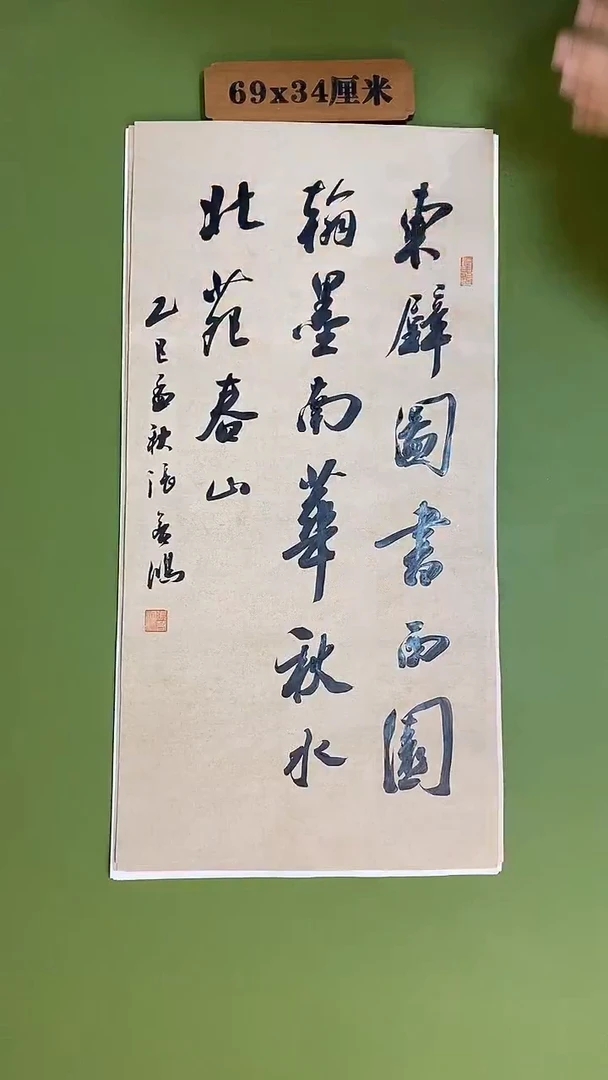 69x34厘米
東壁圖書西園
翰墨南華秋水
北苑春山
乙巳孟秋張善鴻